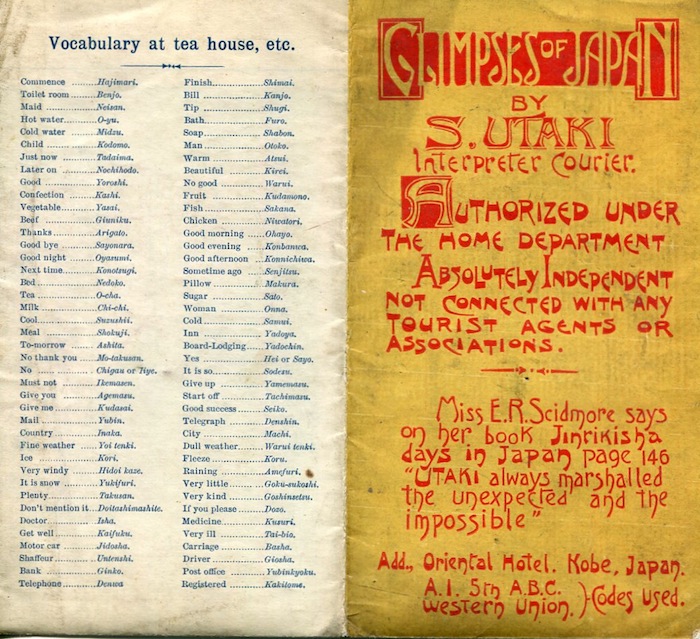 Vocabulary at tea house, etc.
Commence ........ Hajimari.
Toilet room ........ Benjo.
Maid ........ Neisan.
Hot water ........ O-yu.
Cold water ........ Midzu.
Child ........ Kodomo.
Just now ........ Tadaima.
Later on ........ Nochihodo.
Good ........ Yoroshi.
Confection ........ Kashi.
Vegetable ........ Yasai.
Beef ........ Giuniku.
Thanks ........ Arigato.
Good bye ........ Sayonara.
Good night ........ Oyasumi.
Next time ........ Konotsugi.
Bed ........ Nedoko.
Tea ........ O-cha.
Milk ........ Chi-chi.
Cool ........ Suzushii.
Meal ........ Shokuji.
To-morrow ........ Ashita.
No thank you ........ Mo-takusan.
No ........ Chigau or Iiye.
Must not ........ Ikemasen.
Give you ........ Agemasu.
Give me ........ Kudasai.
Mail ........ Yubin.
Country ........ Inaka.
Fine weather ........ Yoi tenki.
Ice ........ Kori.
Very windy ........ Hidoi kaze.
It is snow ........ Yukifuri.
Plenty ........ Takusan.
Don't mention it ... Doitashimashite.
Doctor ........ Isha.
Get well ........ Kaifuku.
Motor car ........ Jidosha.
Shaffeur ........ Untenshi.
Bank ........ Ginko.
Telephone ........ Denwa
Finish ........ Shimai.
Bill ........ Kanjo.
Tip ........ Shugi.
Bath ........ Furo.
Soap ........ Shabon.
Man ........ Otoko.
Warm ........ Atsui.
Beautiful ........ Kirei.
No good ........ Warui.
Fruit ........ Kudamono.
Fish ........ Sakana.
Chicken ........ Niwatori.
Good morning ........ Ohayo.
Good evening ........ Konbanwa.
Good afternoon ........ Konnichiwa.
Sometime ago ........ Senjitsu.
Pillow ........ Makura.
Sugar ........ Sato.
Woman ........ Onna.
Cold ........ Samui.
Inn ........ Yadoya.
Board-Lodging ........ Yadochin.
Yes ........ Hei or Sayo.
It is so ........ Sodesu.
Give up ........ Yamemasu.
Start off ........ Tachimasu.
Good success ........ Seiko.
Telegraph ........ Denshin.
City ........ Machi.
Dull weather ........ Warui tenki.
Fleeze ........ Koru.
Raining ........ Amefuri.
Very little ........ Goku-sukoshi.
Very kind ........ Goshinsetsu.
If you please ........ Dozo.
Medicine ........ Kusuri.
Very ill ........ Tai-bio.
Carriage ........ Basha.
Driver ........ Giosha.
Post office ........ Yubinkyoku.
Registered ........ Kakitome.
GLIMPSES OF JAPAN
BY
S. UTAKI
Interpreter Courier.
AUTHORIZED UNDER
THE HOME DEPARTMENT
ABSOLUTELY INDEPENDENT
NOT CONNECTED WITH ANY
TOURIST AGENTS OR
ASSOCIATIONS.
Miss E.R. Scidmore says
on her book Jinrikisha
days in Japan page 146
"UTAKI always marshalled
the unexpected and the
impossible"
Add., Oriental Hotel. Kobe, Japan.
A.1. 5th A.B.C.
Western Union. } Codes used.